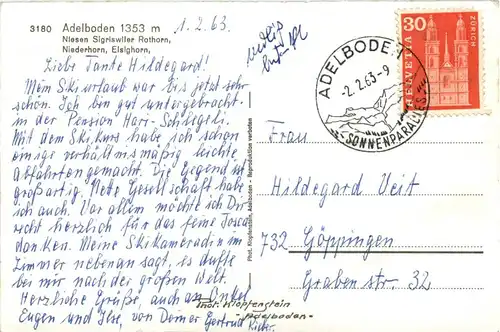 3180 Adelboden 1353 m
Niesen Sigriswiler Rothorn,
Niederhorn, Elsighorn,
1.2.63.
Liebe Tante Hildegard!
Mein Skiurlaub war bis jetzt sehr
schön. Ich bin gut untergebracht
in der Pension Hari-Schlegeli.
Mit dem Skikurs habe ich schon
einige verhältnismäßig leichte
Abfahrten gemacht. Die Gegend ist
großartig. Nette Gesellschaft habe
ich auch. Vor allem möchte ich Dir
recht herzlich für das feine Tosca
danken. Meine Skikameradin im
Zimmer nebenan sagt, es dufte
bei mir nach der großen Welt.
Herzliche Grüße, auch an Onkel
Eugen und Ilse, von Deiner Gertrud
Phot. Klopfenstein, Adelboden - Reproduktion verboten
Phot. Klopfenstein
-Adelboden-
ADELBODEN
-2.2.63-9
SONNENPARADIES
30
HELVETIA
ZÜRICH
Frau
Hildegard Veit
732 Göppingen
Grabenstr. 32